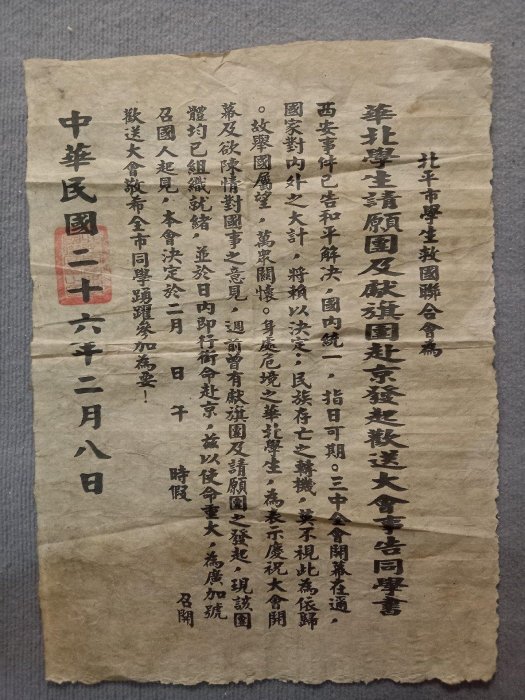 北平市學生救國聯合會為
華北學生請願團及献旗團赴京發起歡送大會事告同學書
西安事件已告和平解决，國內統一，指日可期。三中全會開幕在邇，
國家對內外之大計，將賴以決定；民族存亡之轉機，莫不視此為依歸
。故舉國属望，萬衆關懷。身處危境之華北學生，為表示慶祝大會開
幕及欲陳情對國事之意見，週前曾有献旗團及請願團之發起，現該團
體均已組織就緒，並於日內即行銜命赴京，兹以使命重大，為廣加號
召國人起見，本會決定於二月　日　午　時假　召開
歡送大會敬希全市同學踴躍參加為要！
中華民國二十六年二月八日